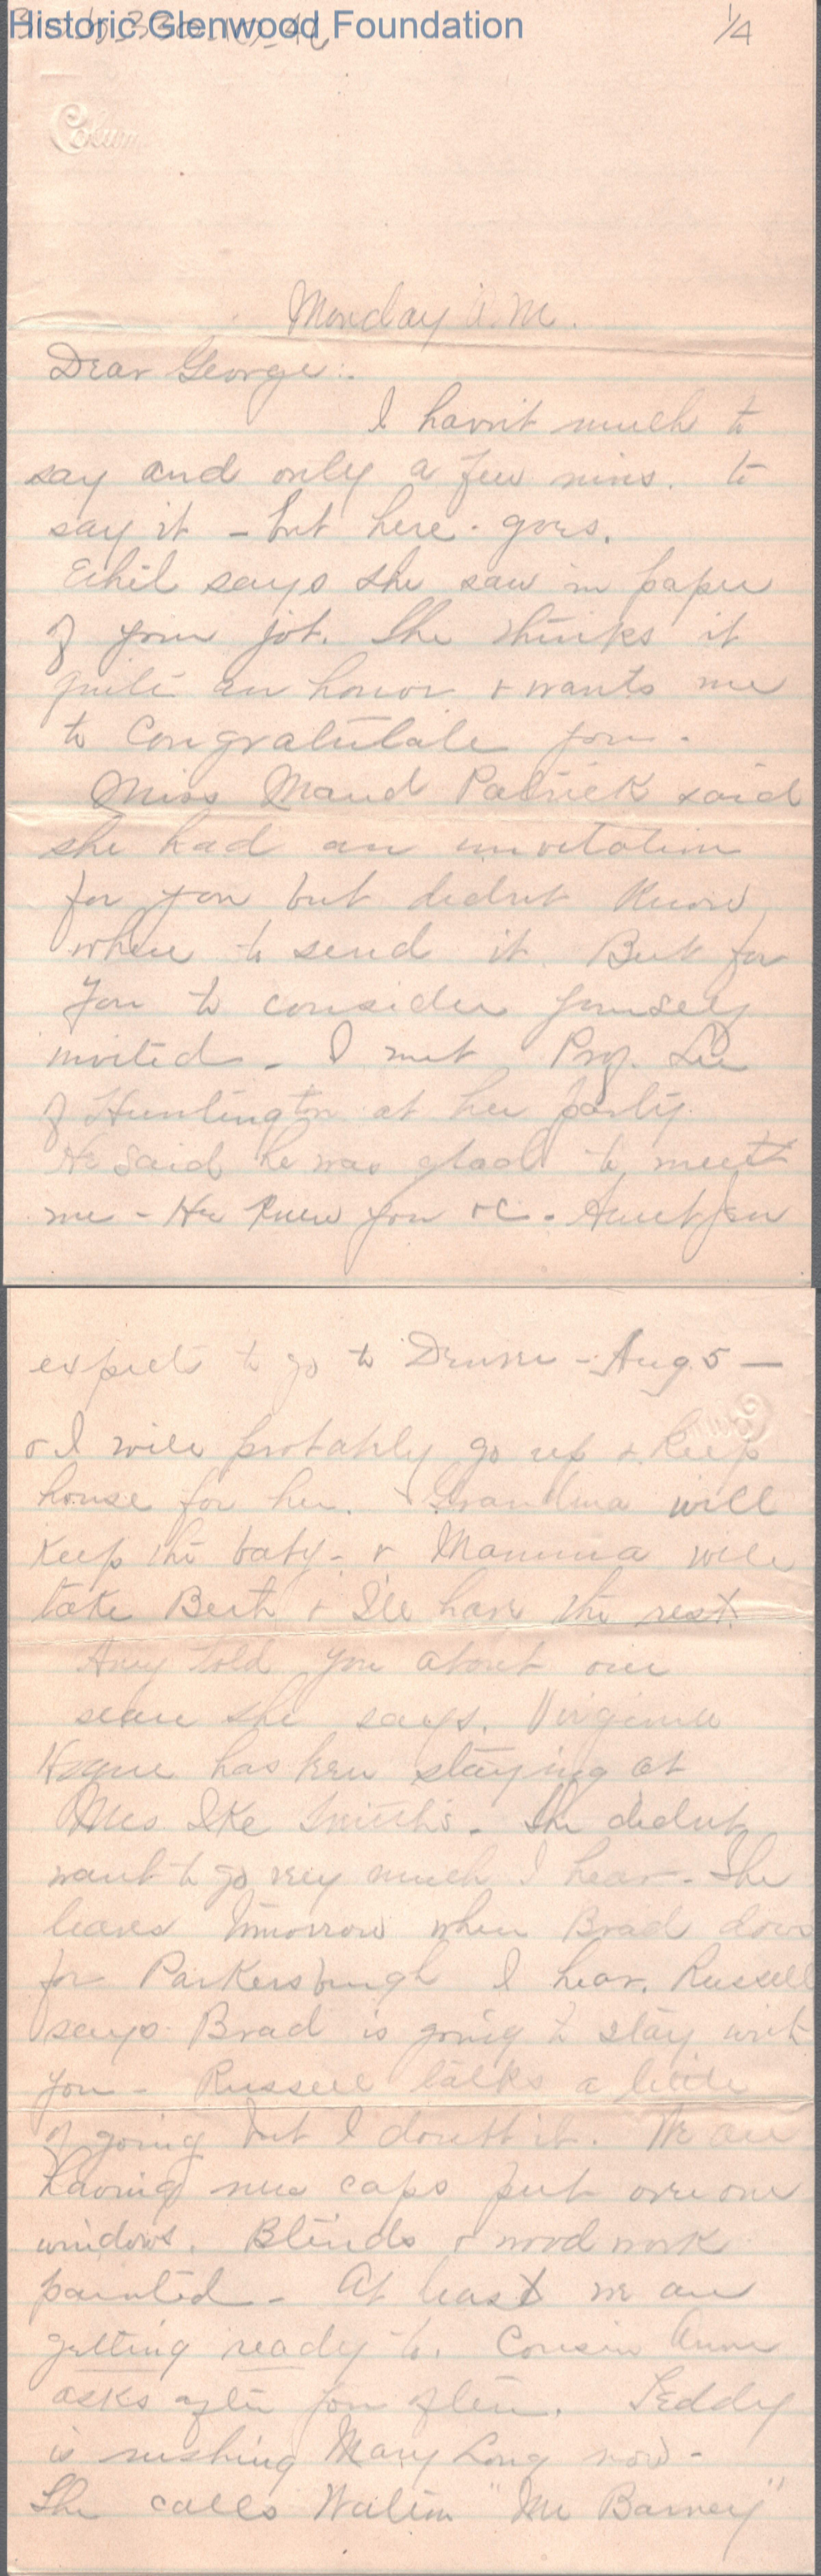 Historic Glenwood Foundation
1/4
Colum
Monday A.M.
Dear George:-
I havn't much to
say and only a few mins. to
say it - but here goes.
Ethel says she saw in paper
of your job. She thinks it
quite an honor & wants me
to Congratulate you -
Miss Maud Patrick said
she had an invitation
for you but didnt know
where to send it. But for
you to consider yourself
invited - I met Prof. Lee
of Huntington at her party.
He said he was glad to meet
me - He knew you &c - Aunt Jen
expects to go to Denver - Aug 5 -
& I will probably go up & keep
house for her. Grandma will
keep the baby - & Mamma will
take Beth & I'll have the rest.
Amy told you about our
she says. Virginia
Hogue has been staying at
Mrs Ike Smith's - She didnt
want to go very much I hear - She
leaves tomorrow when Brad does
for Parkersburgh I hear. Russell
says Brad is going to stay with
you - Russell talks a little
of going but I doubt it. We are
having new caps put over our
windows. Blinds & wood work
painted - At least we are
getting ready to. Cousin Anne
asks after you often. Teddy
is rushing Mary Long now -
She calls "Mr Barney"